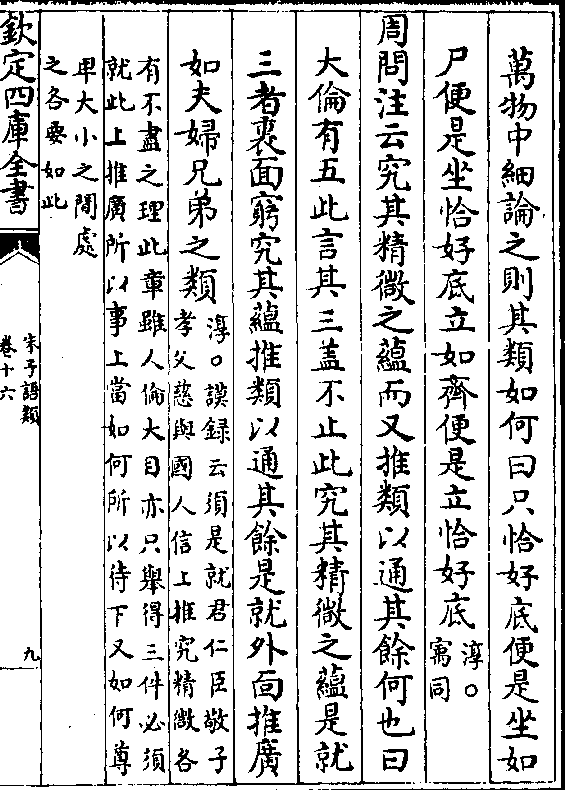 萬物中細論之則其類如何曰只恰好底便是坐如
尸便是坐恰好底立如齊便是立恰好底淳○
㝢同
周問注云究其精微之藴而又推類以通其餘何也曰
大倫有五此言其三蓋不止此究其精微之藴是就
三者裏面窮究其藴推類以通其餘是就外面推廣
如夫婦兄弟之類淳○謨録云須是就君仁臣敬子
孝父慈與國人信上推究精微各
有不盡之理此章雖人倫大目亦只舉得三件必須
就此上推廣所以事上當如何所以待下又如何尊
卑大小之間處
之各要如此
欽定四庫全書
朱子語類
卷十六
九